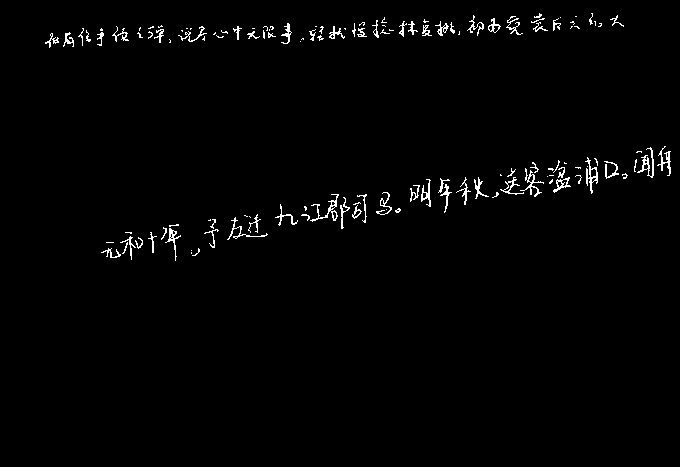 低眉信手续续弹，说尽心中无限事。轻拢慢捻抹复挑，初为霓裳后六幺。大
元和十年，予左迁九江郡司马。明年秋，送客湓浦口。闻舟